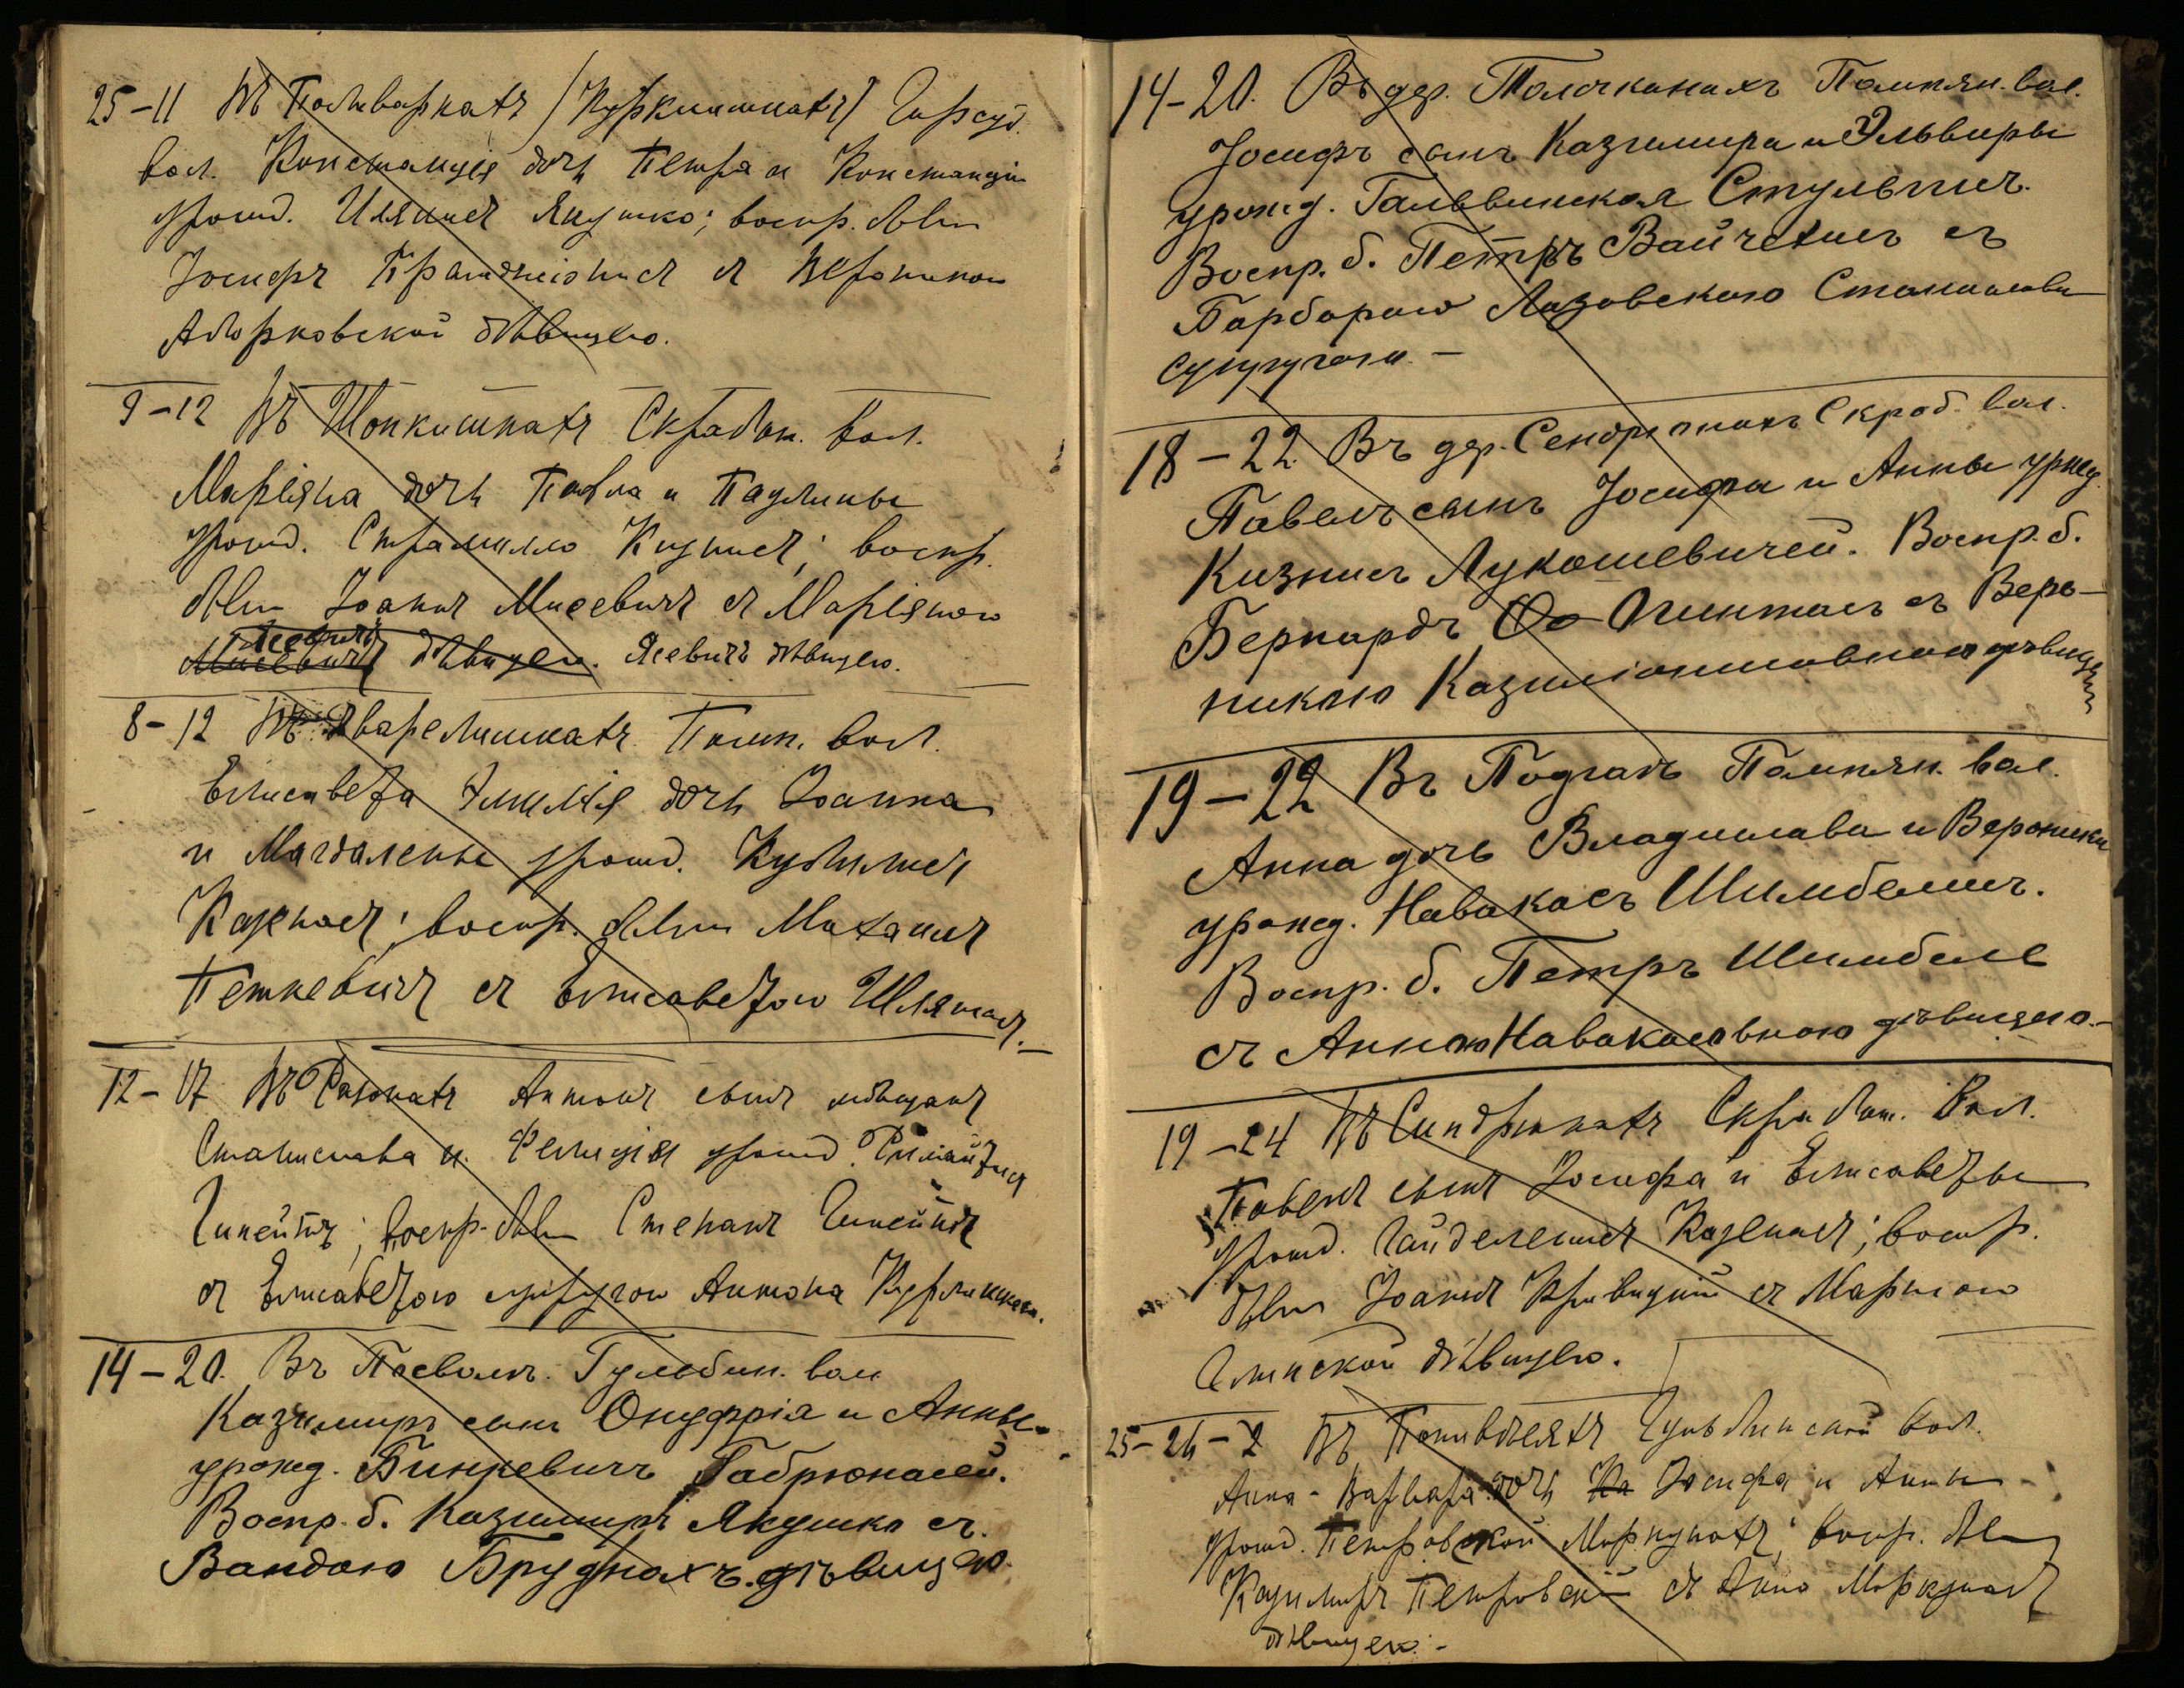 25-11 Въ Поливаркахъ (Куркишкахъ) Гирсуд.
вол. Констанція дочь Петра и Констанціи
урожд. Илянис Якушко; воспр. были
Іосифъ съ Вероникою
дѣвицею.
9-12 Въ Шопкишкахъ Скрабон. вол.
Маріяна дочь Павла и Паулины
урожд. Страмилло Кизнис; воспр.
были Іоаннъ Мисевичъ съ Маріяною
Мисевичъ Ясевичъ дѣвицею. Ясевичъ дѣвицею.
8-12 Въ Дварелишкахъ Помп. вол.
Елисавета Эмилія дочь Іоанна
и Магдалены урожд. Кубилис
Казенас; воспр. были
Петкевичъ съ Елисаветою Шляжас.
12-17 Въ Антонъ сынъ мѣщанъ
Станислава и Фелиціи урожд.
Гинейтъ; воспр. были Степанъ Гинейтъ
съ Елисаветою супругою Антона
14-20. Въ Посволь. Гульбин. вол.
Казимиръ сынъ Онуфрія и Анны
урожд. Бинкевичъ Габрюнасей.
Воспр. б. Казимиръ Якушко съ
Вандою Бруднахъ дѣвицею.
14-20. Въ дер. Толочканахъ Помпян. вол.
Іосифъ сынъ Казимира и Эльвиры
урожд. Гальвинская Стульпинъ.
Воспр. б. Петръ Вайчехисъ съ
Барбарою Лазовскою Станислава
супругою. -
18-22. Въ дер. Скроб. вол.
Павелъ сынъ Іосифа и Анны уржд.
Кизнисъ Лукашевичей. Воспр. б.
Бернардъ Огинтасъ съ Веро-
никою дѣвицею
19-22 Въ Подгай Помпян. вол.
Анна дочь Владислава и Вероники
урожд. Навакасъ Шимбелисъ.
Воспр. б. Петръ Шимбеле
съ Анною Навакасовною дѣвицею. -
19-24 Въ Синдрюнахъ Скрабат. вол.
Павелъ сынъ Іосифа и Елисаветы
урожд. Казенас; воспр.
были Іоаннъ Кривицкій съ Маріею
дѣвицею.
25-26-2 Въ Гульбинской вол.
Анна-Варвара дочь Ка Іосифа и Анны
урожд. Петровской Моркунахъ; воспр. были
Казимиръ Петровскій съ Анною Моркунас
дѣвицею. -